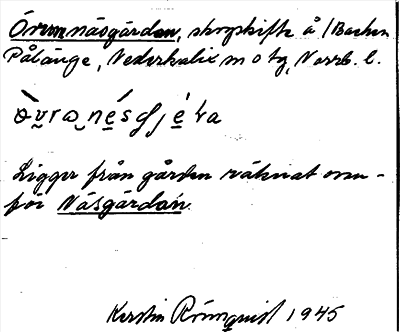 Övernäsgården, skogskifte å /Backen
Pålänge, Nederkalix sn o tg, Norrb. l.
Ligger från gården räknat ovan-
för Näsgårdan.
Kerstin Rönnqvist 1945